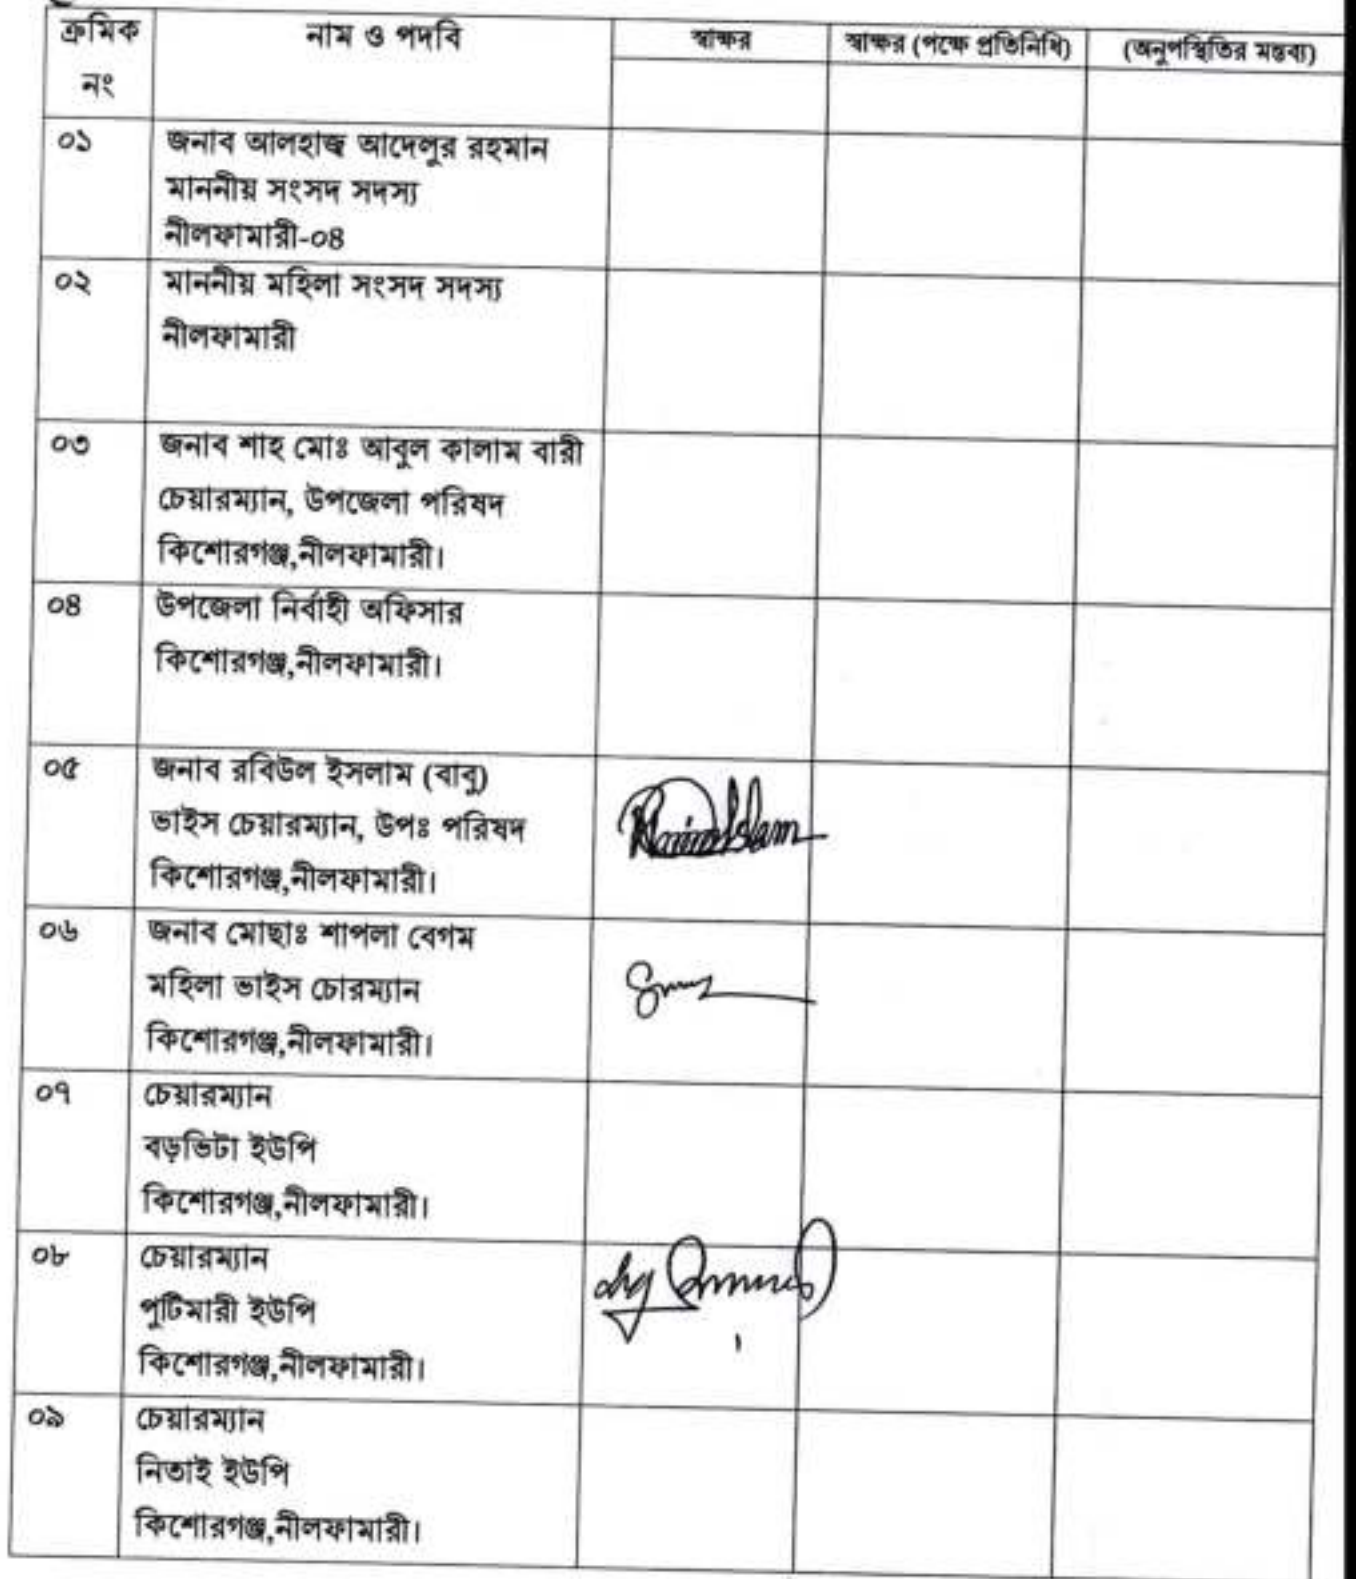 ক্রমিক নাম ও পদবি স্বাক্ষর স্বাক্ষর (পক্ষে প্রতিনিধি) (অনুপস্থিতির মন্তব্য)
নং
০১ জনাব আলহাজ্ব আদেলুর রহমান
মাননীয় সংসদ সদস্য
নীলফামারী-০৪
০২ মাননীয় মহিলা সংসদ সদস্য
নীলফামারী
০৩ জনাব শাহ মোঃ আবুল কালাম বারী
চেয়ারম্যান, উপজেলা পরিষদ
কিশোরগঞ্জ,নীলফামারী।
০৪ উপজেলা নির্বাহী অফিসার
কিশোরগঞ্জ,নীলফামারী।
০৫ জনাব রবিউল ইসলাম (বাবু)
ভাইস চেয়ারম্যান, উপঃ পরিষদ
কিশোরগঞ্জ,নীলফামারী।
০৬ জনাব মোছাঃ শাপলা বেগম
মহিলা ভাইস চোরম্যান
কিশোরগঞ্জ,নীলফামারী।
০৭ চেয়ারম্যান
বড়ভিটা ইউপি
কিশোরগঞ্জ,নীলফামারী।
০৮ চেয়ারম্যান
পুটিমারী ইউপি
কিশোরগঞ্জ,নীলফামারী।
০৯ চেয়ারম্যান
নিতাই ইউপি
কিশোরগঞ্জ,নীলফামারী।